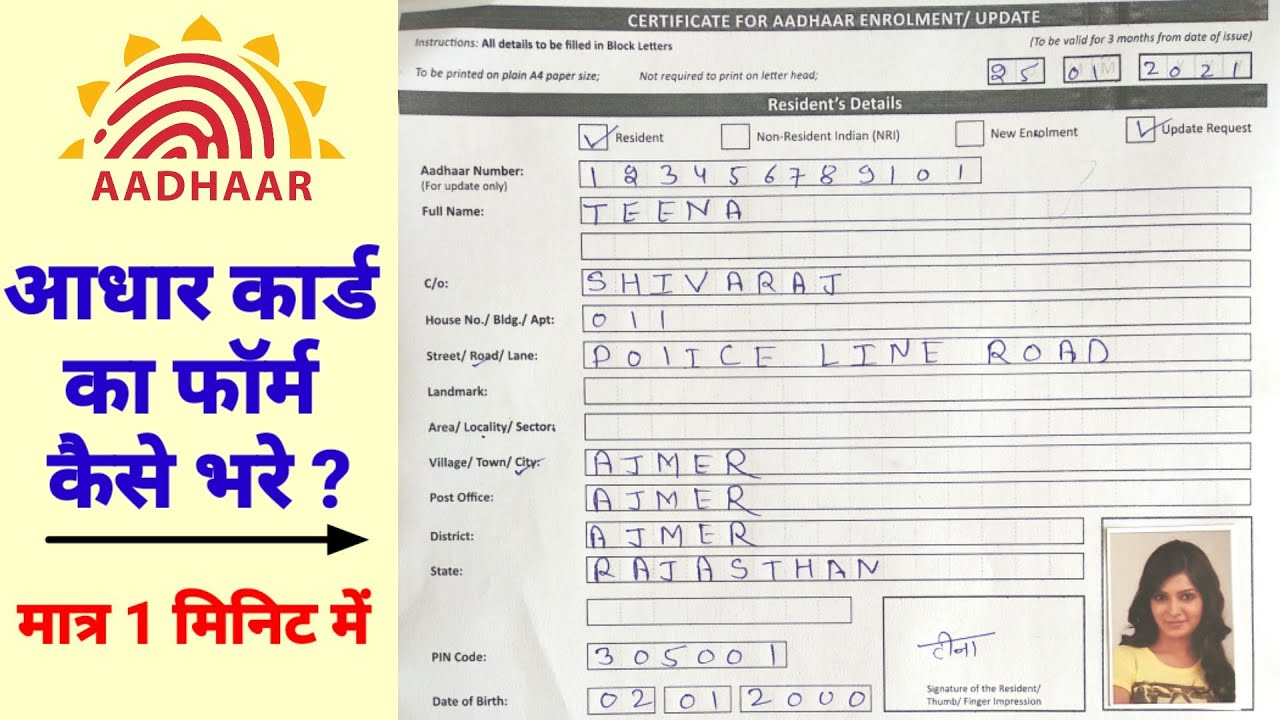 AADHAAR
आधार कार्ड
का फॉर्म
कैसे भरे ?
मात्र 1 मिनिट में
CERTIFICATE FOR AADHAAR ENROLMENT/ UPDATE
Instructions: All details to be filled in Block Letters
(To be valid for 3 months from date of issue)
To be printed on plain A4 paper size; Not required to print on letter head; 25 01 2021
Resident's Details
Resident Non-Resident Indian (NRI) New Enrolment Update Request
Aadhaar Number: 123456789101
(For update only)
Full Name: TEENA
C/o: SHIVARAJ
House No./ Bldg./ Apt: 011
Street/ Road/ Lane: POLICE LINE ROAD
Landmark:
Area/ Locality/ Sector:
Village/ Town/ City: AJMER
Post Office: AJMER
District: AJMER
State: RAJASTHAN
PIN Code: 305001
टीना
Signature of the Resident/
Thumb/ Finger Impression
Date of Birth: 02 01 2000